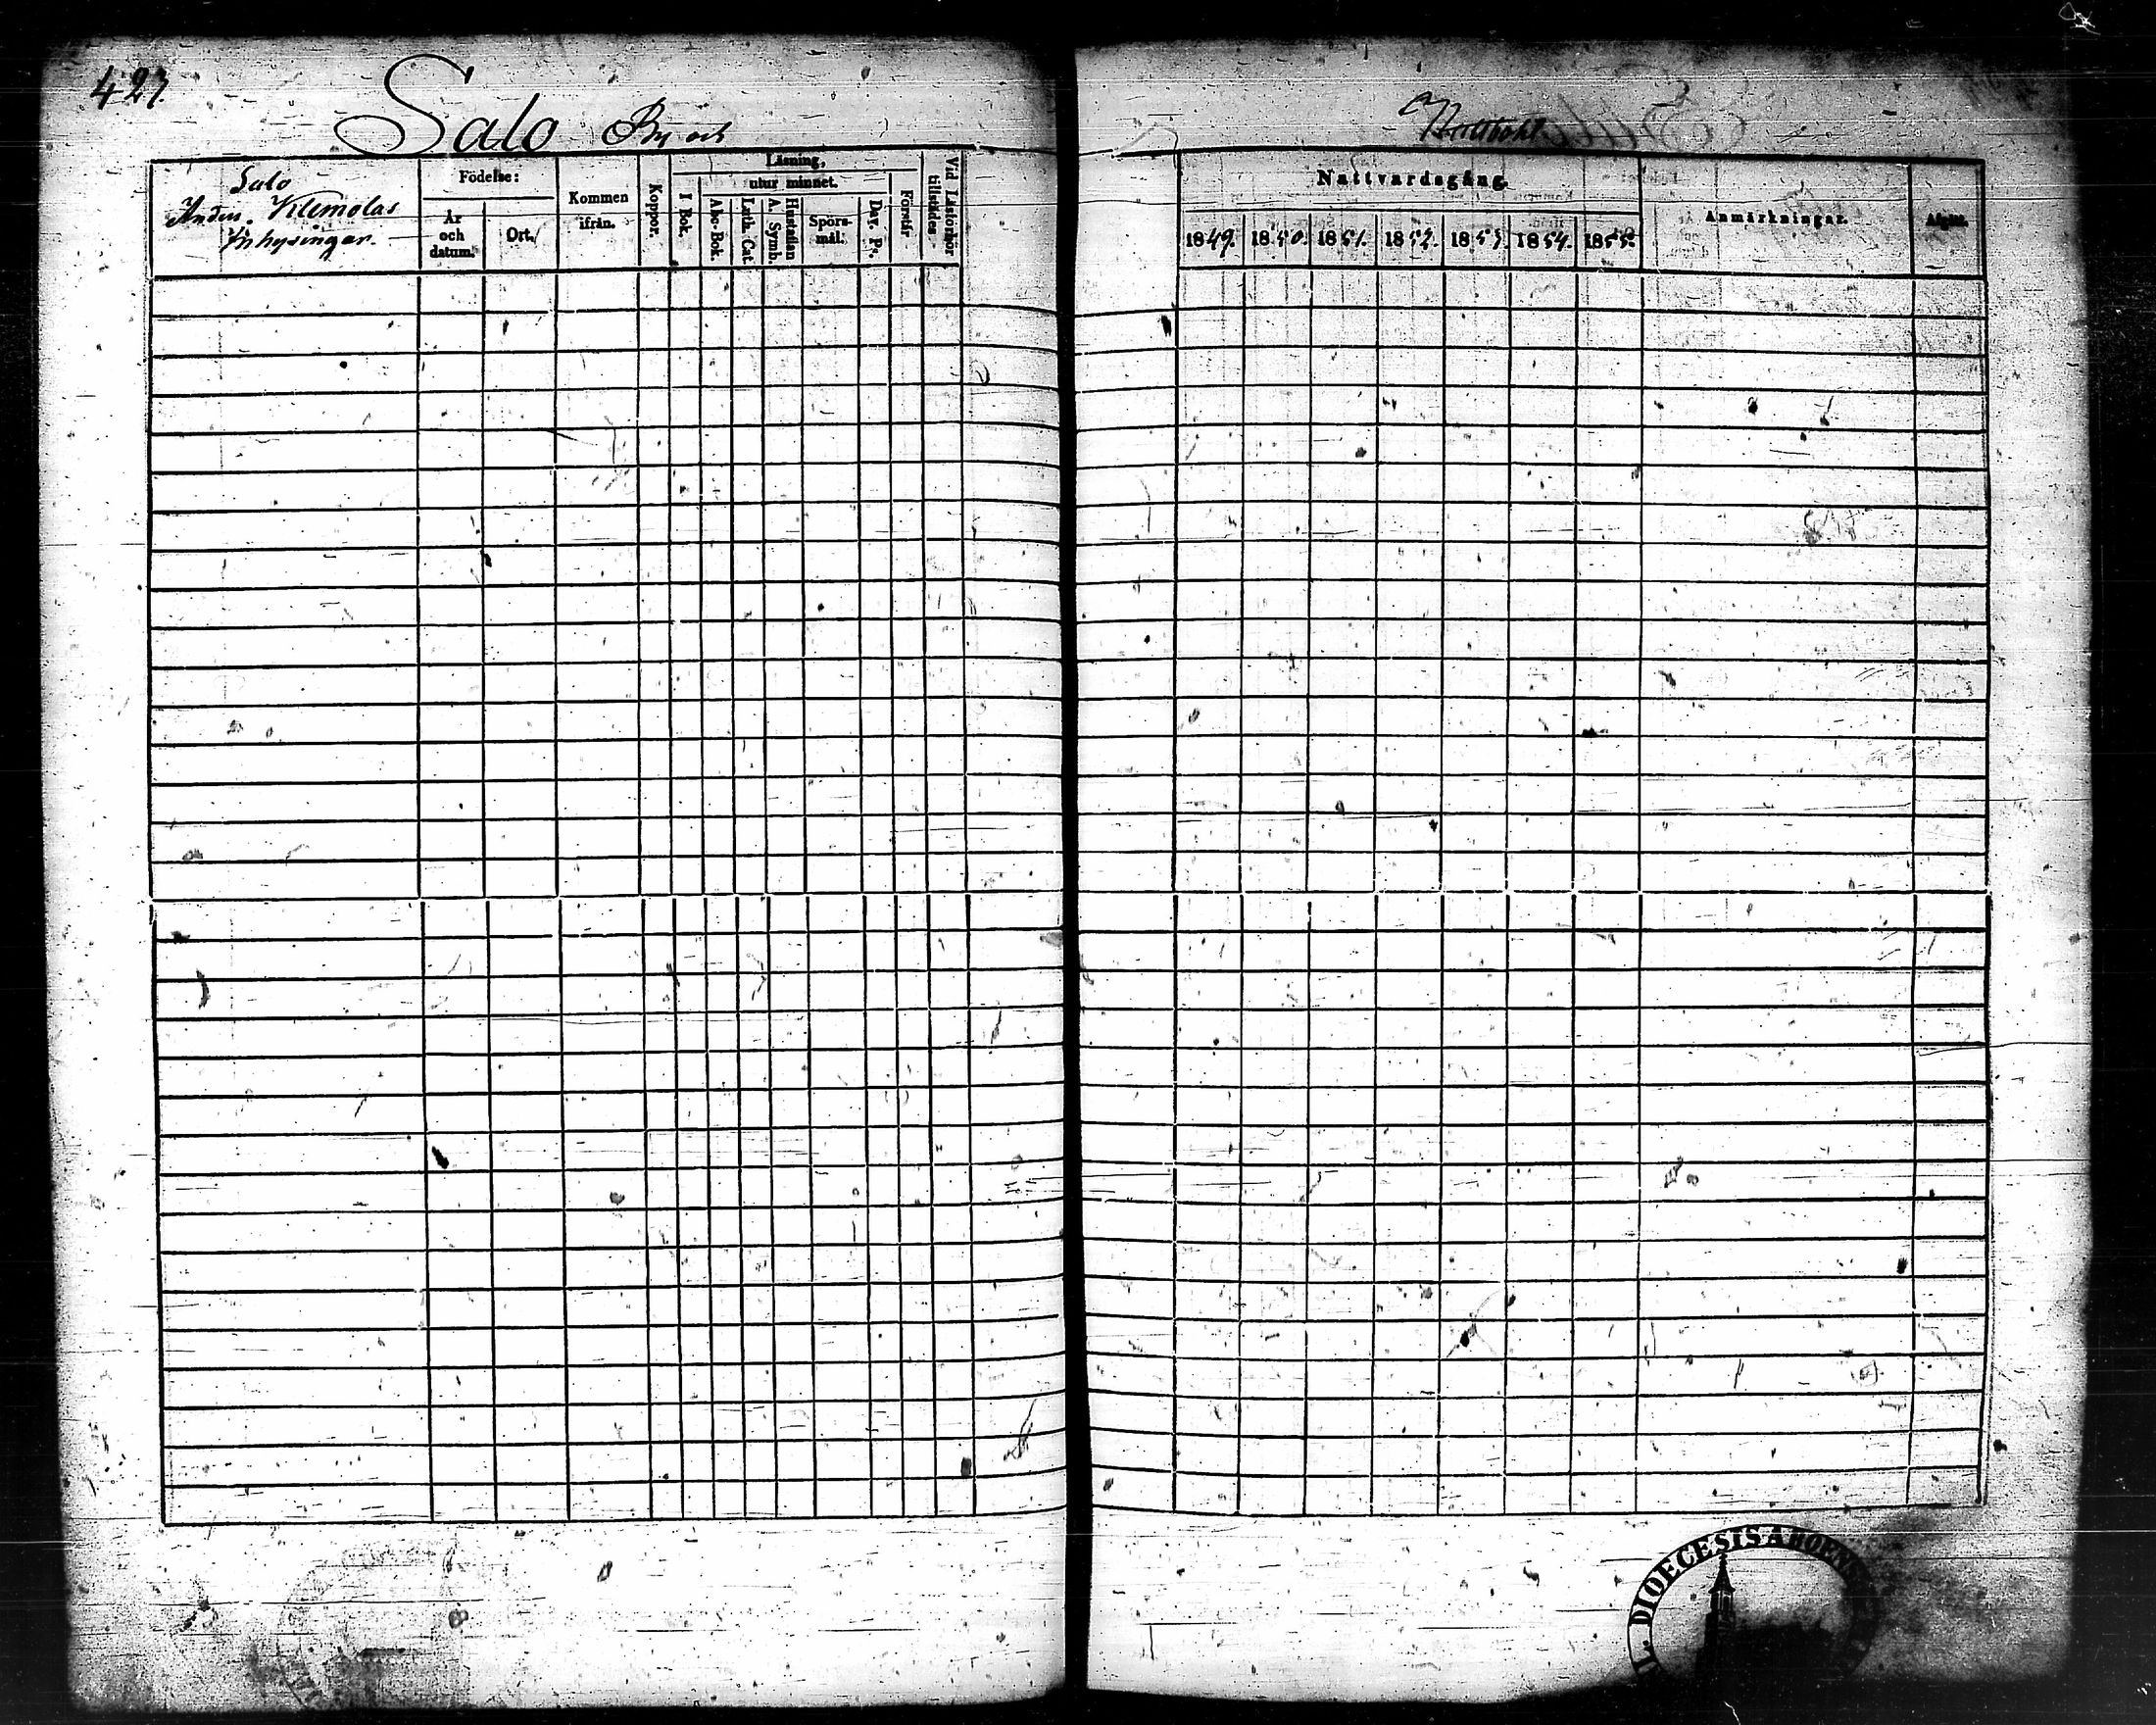 427.
Salo By och
Salo
Anders Klemolas
Inhysingar.
Födelse:
År
och
datum.
Ort.
Kommen
ifrån.
Koppor.
Läsning,
utur minnet.
I Bok.
Abc-Bok.
Luth. Cat.
Hustaflan
A. Symb.
Spörs-
mål.
Dav. Ps.
Förstår
Vid Läsförhör
tillstädes
Nattvardsgång
1849. 1850. 1851. 1852. 1853. 1854. 1855.
Anmärkningar.
Afgått.
DIOECESIS ABOENS